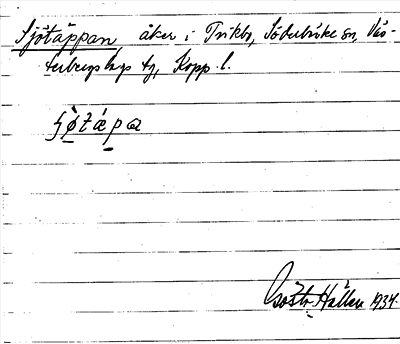 Sjötäppan, åker i Trikbo, Söderbärke sn, Väs-
terbergslags tg, Kopp. l.
Hallen 1934.